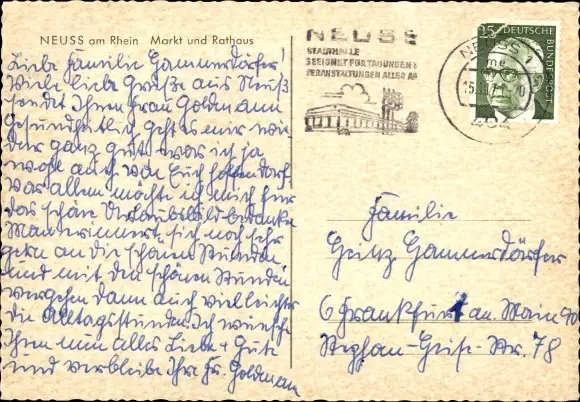 NEUSS am Rhein Markt und Rathaus
Liebe Familie Gammerdörfer!
Viele liebe Grüße aus Neuß
sendet Ihnen Frau Goldmann
Gesundheitlich geht es mir wie
der ganz gut was ich ja
wohl auch von Euch hoffen darf
Vor allem möchte ich mich für
das schöne Urlaubsbild bedanken
Man erinnert sich noch sehr
gern an die schönen Stunden
und mit den schönen Stunden
vergehen dann auch vielleichter
die Alltagsstunden. Ich wünsche
Ihnen nun alles Liebe + Gute
und verbleibe Ihre Fr. Goldmann
NEUSS
STADTHALLE
GEEIGNET FÜR TAGUNGEN &
VERANSTALTUNGEN ALLER AR
NEUSS 1
35
DEUTSCHE BUNDESPOST
Familie
Heinz Gammerdörfer
6 Frankfurt am. Main 90
Stephan-Heise-Str. 78